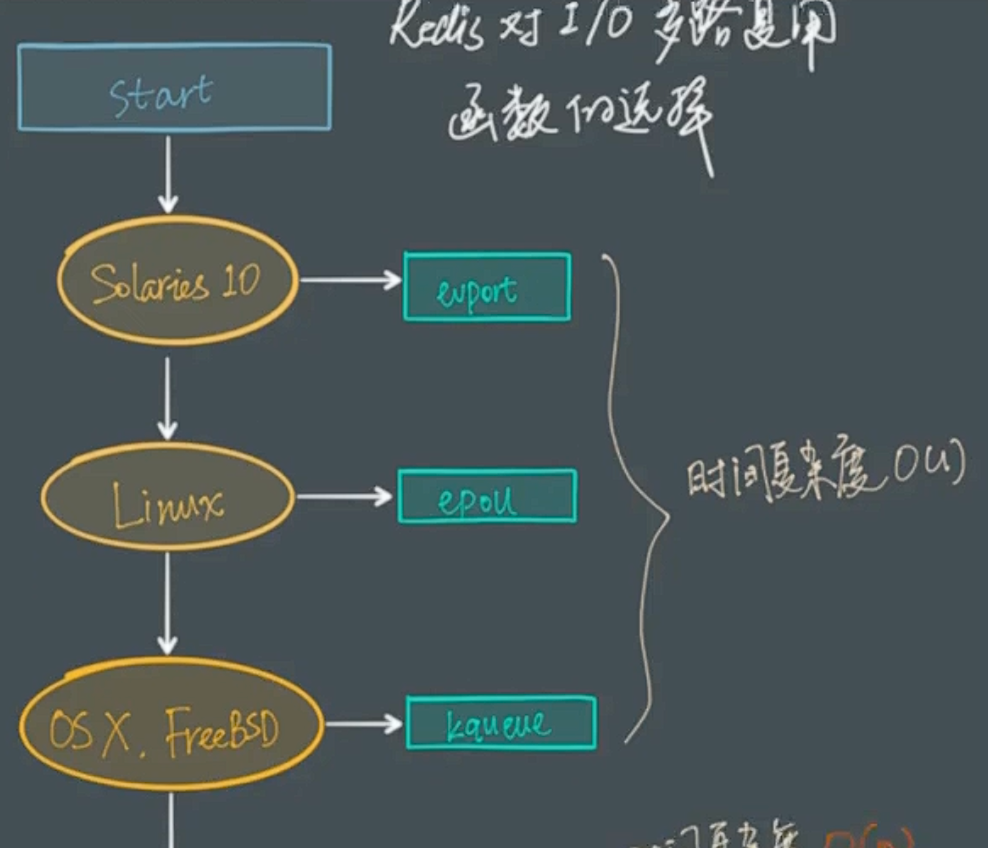 Redis 对 I/O 多路复用
函数的选择
Start
Solaries 10
evport
Linux
epoll
时间复杂度 O(1)
OS X. FreeBSD
kqueue
时间复杂度 O(n)